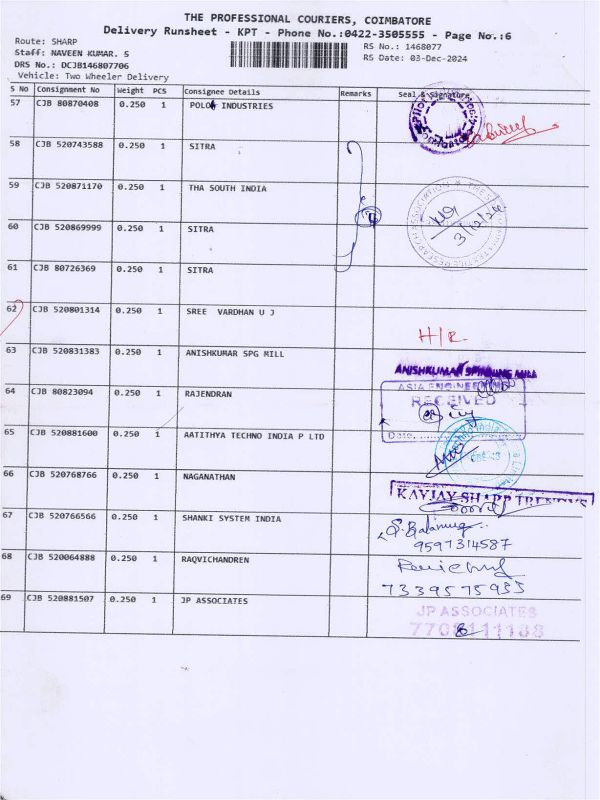 THE PROFESSIONAL COURIERS, COIMBATORE
Delivery Runsheet - KPT - Phone No.:0422-3505555 - Page No.:6
Route: SHARP
Staff: NAVEEN KUMAR. S
DRS No.: DCJB146807706
Vehicle: Two Wheeler Delivery
RS No.: 1468077
RS Date: 03-Dec-2024
S No Consignment No Weight PCS Consignee Details Remarks Seal & Signature
57 CJB 80870408 0.250 1 POLO INDUSTRIES
58 CJB 520743588 0.250 1 SITRA
59 CJB 520871170 0.250 1 THA SOUTH INDIA
3/12/24
60 CJB 520869999 0.250 1 SITRA
61 CJB 80726369 0.250 1 SITRA
62 CJB 520801314 0.250 1 SREE VARDHAN U J
H/R
63 CJB 520831383 0.250 1 ANISHKUMAR SPG MILL
ANISHKUMAR SPINNING MILL
64 CJB 80823094 0.250 1 RAJENDRAN
ASIA ENGINEERING
RECEIVED
Date
65 CJB 520881600 0.250 1 AATITHYA TECHNO INDIA P LTD
66 CJB 520768766 0.250 1 NAGANATHAN
KAYJAY SHARP TRENDYS
67 CJB 520766566 0.250 1 SHANKI SYSTEM INDIA
9597314587
68 CJB 520064888 0.250 1 RAQVICHANDREN
7339575955
69 CJB 520881507 0.250 1 JP ASSOCIATES
JP ASSOCIATES